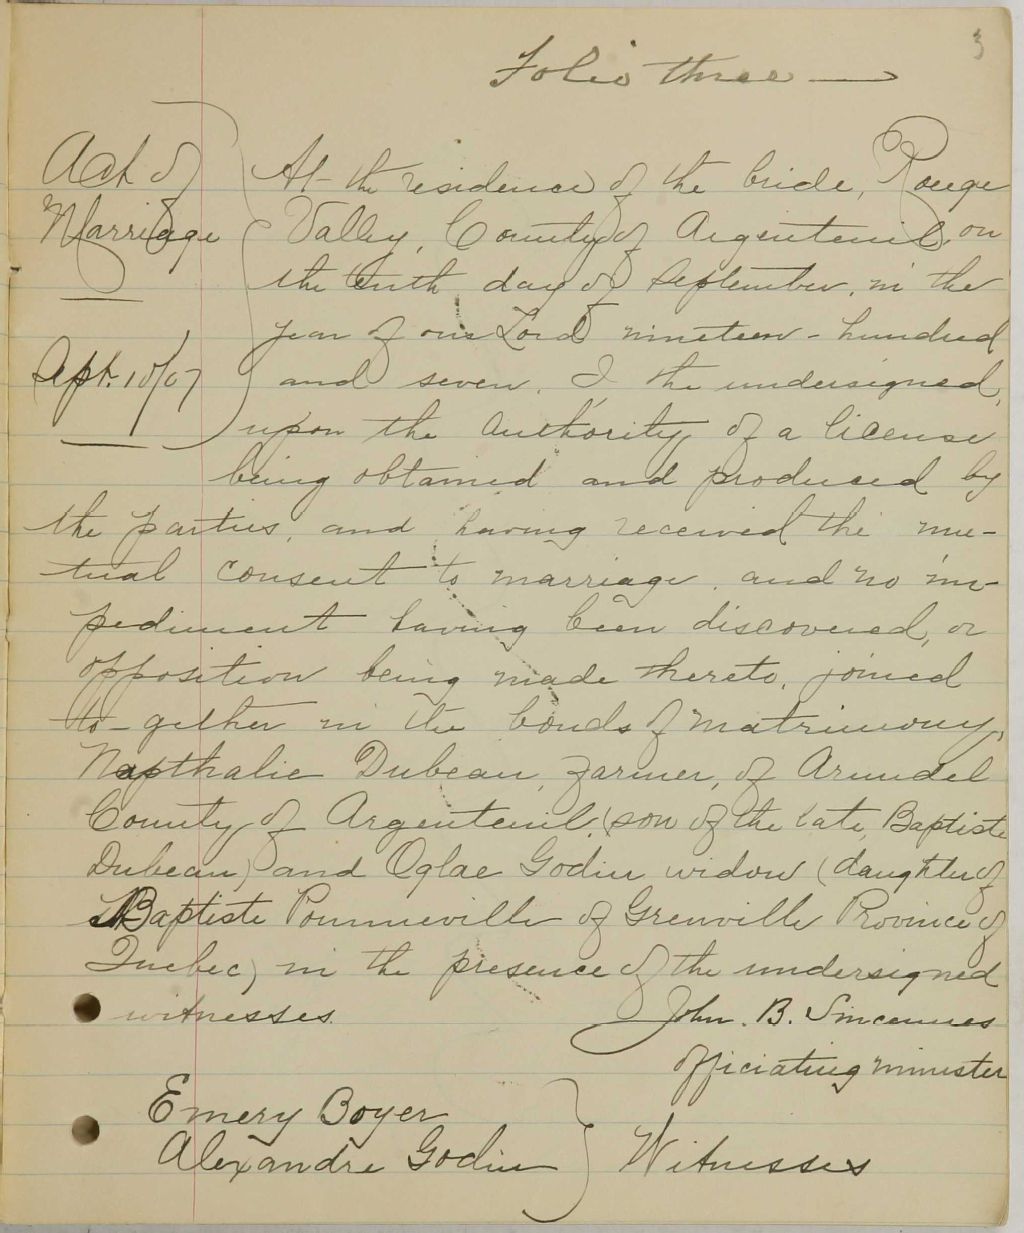 3
Folio three —
Act of
Marriage
Sept. 10/07
At the residence of the bride, Rouge
Valley, County of Argenteuil, on
the tenth day of September, in the
year of our Lord nineteen-hundred
and seven, I the undersigned,
upon the authority of a license
being obtained and produced by
the parties, and having received the mu-
tual consent to marriage, and no im-
pediment having been discovered, or
opposition being made thereto, joined
to-gether in the bonds of matrimony,
Napthalie Dubeau, farmer, of Arundel
County of Argenteuil, (son of the late Baptiste
Dubeau) and Oglae Godin widow (daughter of
Baptiste Pommeville of Grenville Province of
Quebec) in the presence of the undersigned
witnesses.
John. B. Sincennes
officiating minister
Emery Boyer
Alexandre Godin
Witnesses